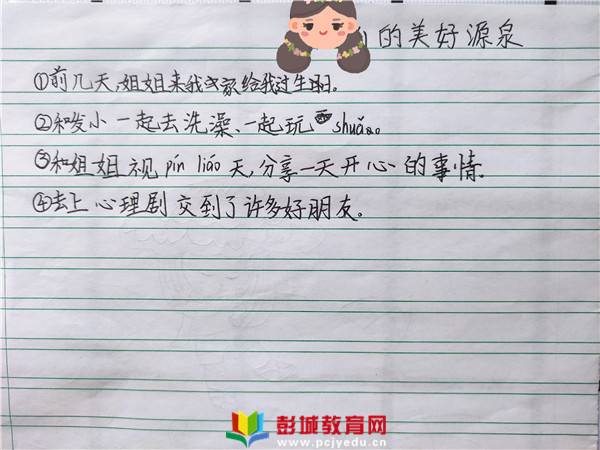 的美好源泉
①前几天,姐姐来我家给我过生日。
②和发小一起去洗澡、一起玩shuǎ。
③和姐姐视pín liáo天,分享一天开心的事情.
④去上心理剧交到了许多好朋友。
彭城教育网
www.pcjyedu.cn